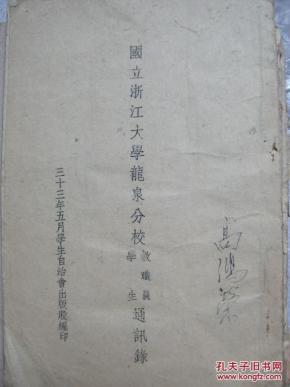 國立浙江大學龍泉分校教職員學生通訊錄
三十三年五月學生自治會出版股編印
高鴻
孔夫子旧书网